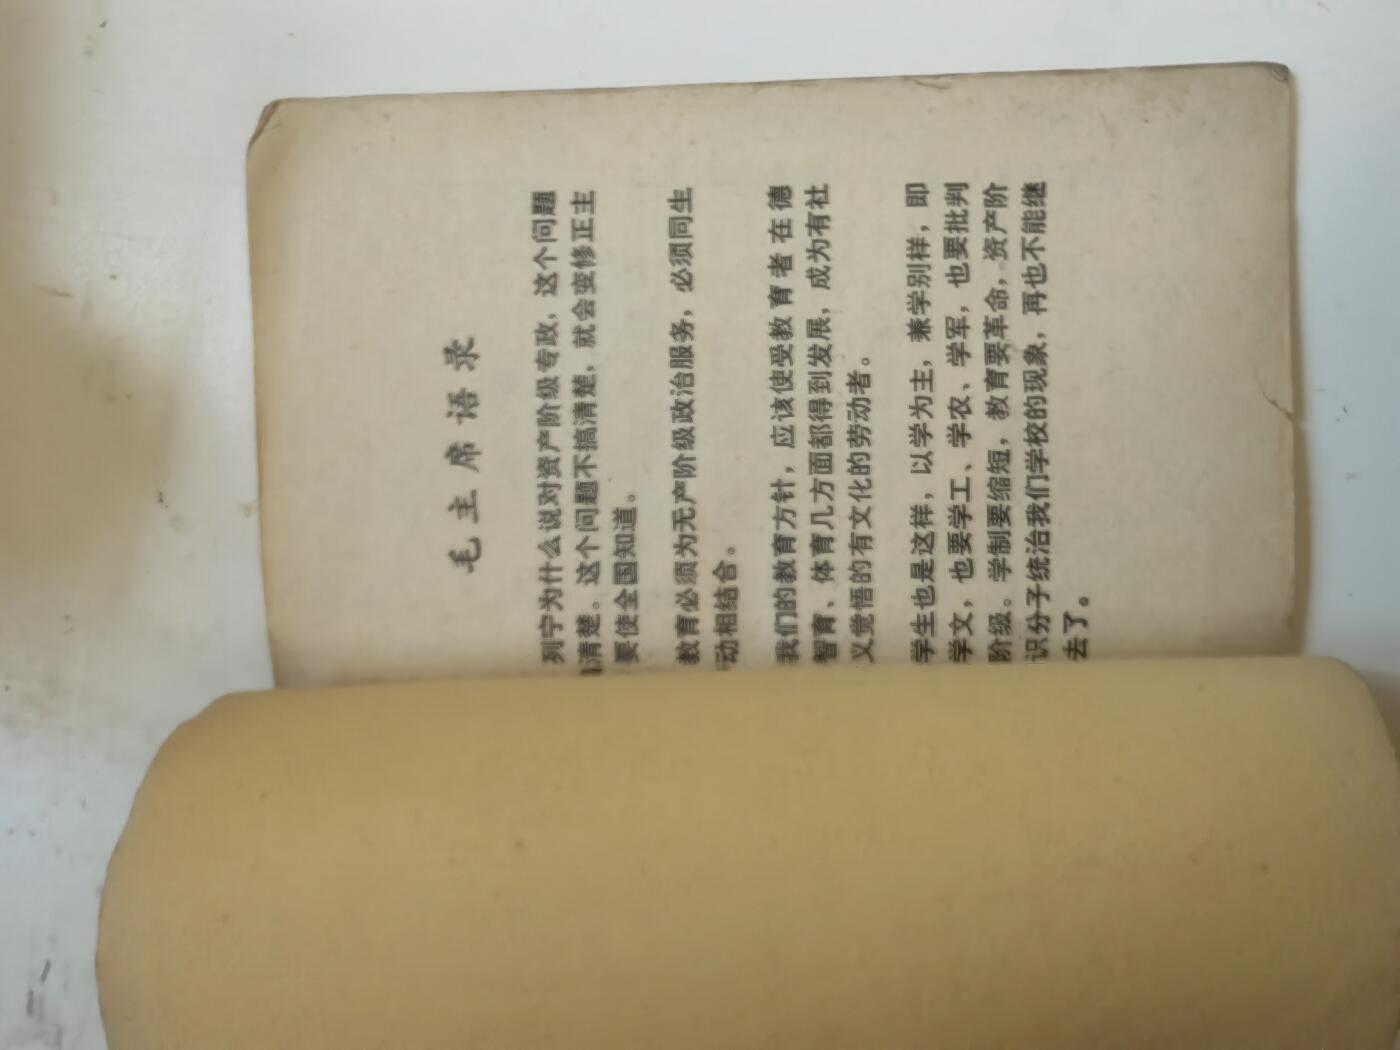 毛主席语录
列宁为什么说对资产阶级专政，这个问题
清楚。这个问题不搞清楚，就会变修正主
要使全国知道。
教育必须为无产阶级政治服务，必须同生
动相结合。
我们的教育方针，应该使受教育者在德
智育、体育几方面都得到发展，成为有社
义觉悟的有文化的劳动者。
学生也是这样，以学为主，兼学别样，即
学文，也要学工、学农、学军，也要批判
阶级。学制要缩短，教育要革命，资产阶
识分子统治我们学校的现象，再也不能继
去了。